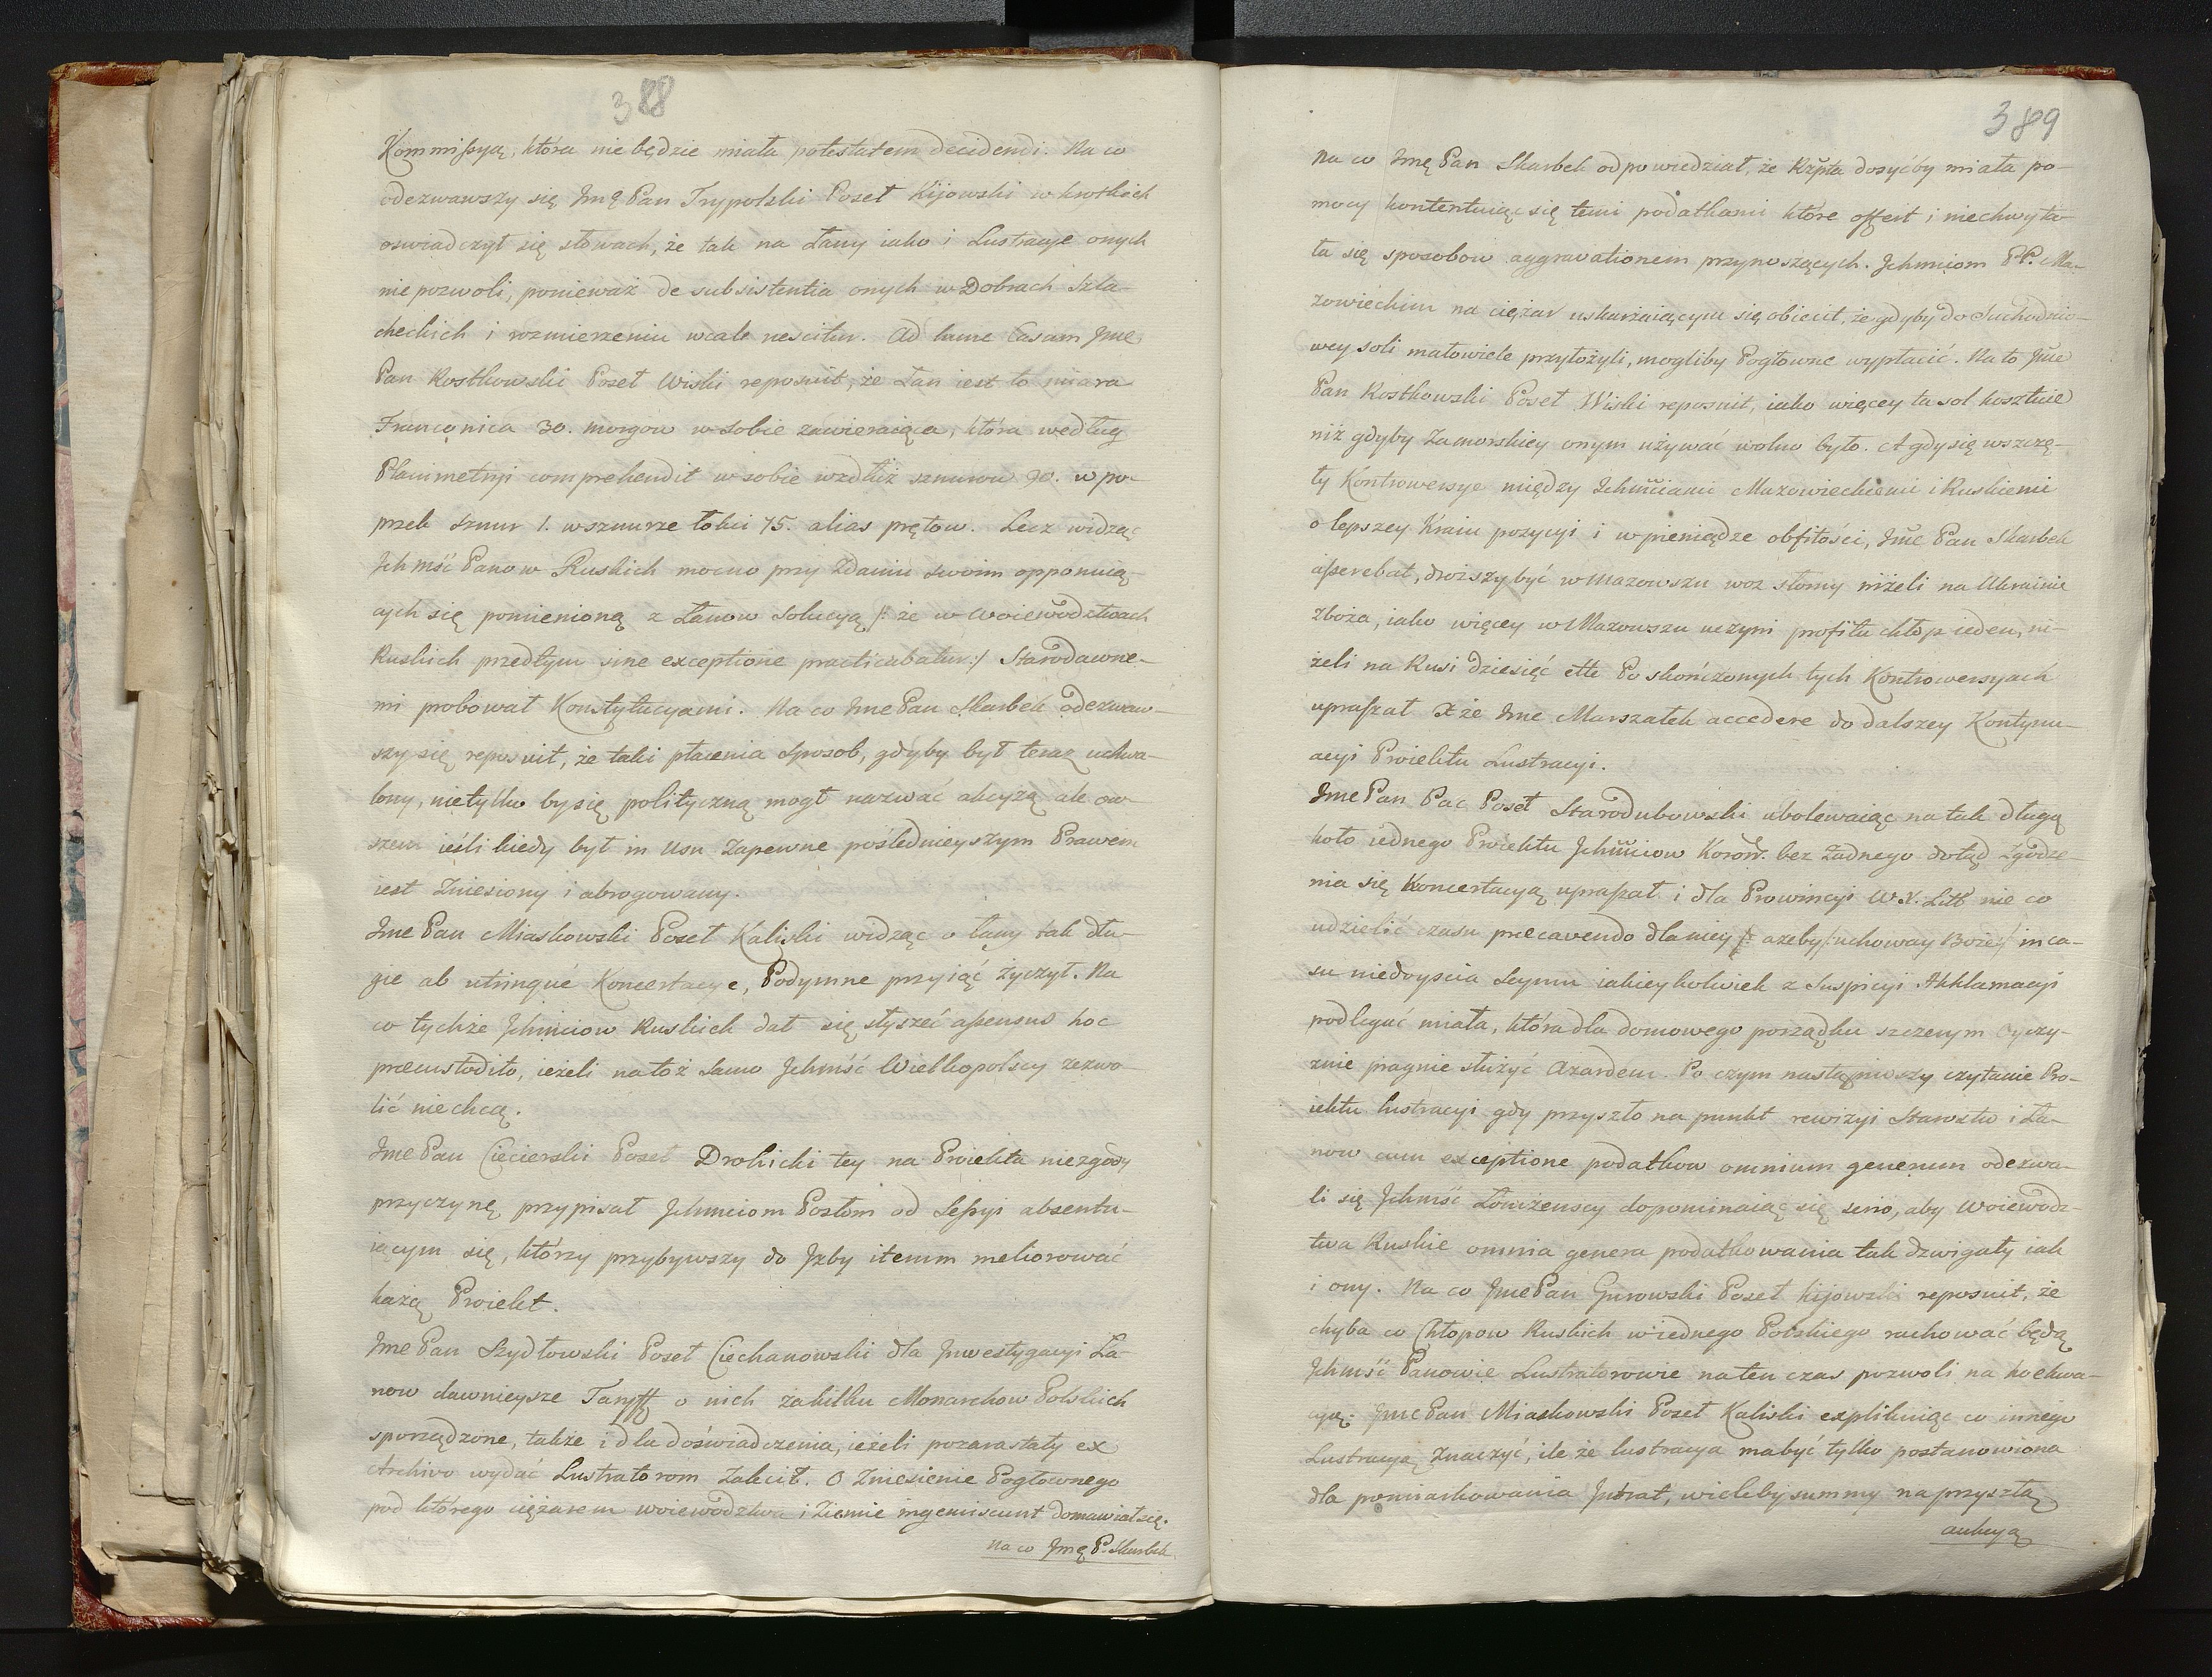 388
Kommissyą, która nie będzie miała potestatem decidendi. Na co
odezwawszy się Jmę Pan Trypolski Poseł Kijowski w krotkich
oswiadczył się słowach, że tak na Łany iako i Lustracye onych
nie pozwoli, ponieważ de subsistentia onych w Dobrach Szla-
checkich i rozmierzeniu wcale nescitur. Ad hunc Casum Jme
Pan Rostkowski Poseł Wiski reposuit, że Łan iest to miara
Franconica 30. morgow w sobie zawieraiąca, która według
Planimetryi comprehendit w sobie wzdłuż sznurow 90. w po-
przek sznur 1. w sznurze łokci 75. alias prętow. Lecz widząc
Jch mść Panow Ruskich mocno przy Zdaniu swoim opponuią-
cych się pomienioną z Łanow Solucyą /: że w Woiewodztwach
Ruskich przedtym sine exceptione practicabatur :/ Starodawne-
mi probował Konstytucyami. Na co Jme Pan Skarbek odezwaw-
szy się reposuit, że taki płacenia Sposob, gdyby był teraz uchwa-
lony, nietylko by się polityczną mogł nazwać akcyzą ale ow-
szem ieśli kiedy był in usu Zapewne poślednieyszym Prawem
iest Zniesiony i abrogowany.
Jme Pan Miaskowski Poseł Kaliski widząc o łany tak dłu-
gie ab utrinque Koncertacye, Podymne przyiąć życzył. Na
co tychże Jchmciow Ruskich dał się słyszeć assensus hoc
praecustodito, ieżeli na toż samo Jchmść Wielkopolscy zezwo-
lić nie chcą.
Jme Pan Ciecierski Poseł Drohicki tey na Proiekta niezgody
przyczynę przypisał Jchmciom Posłom od Sessyi absentu-
iącym się, którzy przybywszy do Jzby iterum meliorować
każą Proiekt.
Jme Pan Szydłowski Poseł Ciechanowski dla Jnwestygacyi Ła-
now dawnieysze Taryffy o nich za kilku Monarchow Polskich
sporządzone, także i dla doświadczenia, ieżeli pozarastały ex
Archivo wydać Lustratorom Zalecił. O Zniesienie Pogłownego
pod którego ciężarem woiewodztwa i Ziemie ingemiscunt domawiał się.
Na co Jmę P. Skarbek
389
Na co Jmę Pan Skarbek odpowiedział, że Rzpta dosyćby miała po-
mocy kontentuiąc się temi podatkami które offert i niechwyta-
ła się sposobow aggravationem przynoszących. Jchmciom PP. Ma-
zowieckim na ciężar uskarżaiącym się obiecił, że gdyby do Suchednio-
wey soli mało wiele przyłożyli, mogliby Pogłowne wypłacić. Na to Jme
Pan Rostkowski Poseł Wiski reposuit, iako więcey ta sol kosztuie
niż gdyby Zamorskiey onym używać wolno było. A gdy się wszczę-
ły Kontrowersye między Jchmciami Mazowieckiemi i Ruskiemi
o lepszey Kraiu pozycyi i w pieniądze obfitości, Jme Pan Skarbek
asserebat, drozszy być w Mazowszu woz słomy niżeli na Ukrainie
Zboża, iako więcey w Mazowszu uczyni profitu chłop ieden, ni-
żeli na Rusi dziesięć ettc Po skończonych tych Kontrowersyach
upraszał Xże Jme Marszałek accedere do dalszey Kontynu-
acyi Proiektu Lustracyi.
Jme Pan Pac Poseł Starodubowski ubolewaiąc na tak długą
koło iednego Proiektu Jchmciow Koron. bez żadnego dotąd Zgodze-
nia się Koncertacyą upraszał i dla Prowincyi W. X. Litt nie co
udzielić czasu praecavendo dla niey /: azeby /: uchoway Boże :/ in ca-
su niedoyscia Seymu iakieykolwiek z Suspicyi Akklamacyi
podlegać miała, która dla domowego porządku szczerym Oyczy-
znie pragnie służyć Azardem. Po czym nastąpiwszy czytanie Pro-
iektu lustracyi gdy przyszło na punkt rewizyi Starostw i Ła-
now cum exceptione podatkow omnium generum odezwa-
li się Jchmść Łomżenscy dopominaiąc się serio, aby Woiewodz-
twa Ruskie omnia genera podatkowania tak dzwigały iak
i ony. Na co Jme Pan Gurowski Poseł Kijowski reposuit, że
chyba co Chłopow Ruskich w iednego Polskiego rachować będą
Jchmść Panowie Lustratorowie na ten czas pozwoli na koekwa-
cyą. Jme Pan Miaskowski Poseł Kaliski explikuiąc co innego
Lustracyą Znaczyć, ile że lustracya ma być tylko postanowiona
dla pomiarkowania Jntrat, wieleby summy na przyszłą
aukcyą